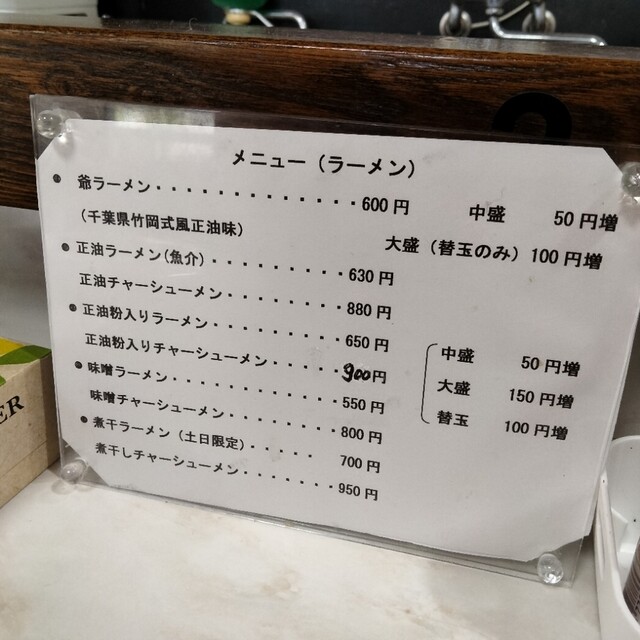 メニュー（ラーメン）
● 爺ラーメン・・・・・・・・・・・・・・600円 中盛 50円増
（千葉県竹岡式風正油味） 大盛（替玉のみ）100円増
● 正油ラーメン(魚介）・・・・・・・・・・630円
正油チャーシューメン・・・・・・・・880円
● 正油粉入りラーメン・・・・・・・・・650円
正油粉入りチャーシューメン・・・・・900円 中盛 50円増
● 味噌ラーメン・・・・・・・・・・・・550円 大盛 150円増
味噌チャーシューメン・・・・・・・・800円 替玉 100円増
● 煮干ラーメン（土日限定）・・・・・ 700円
煮干しチャーシューメン・・・・・・・・950円
ER